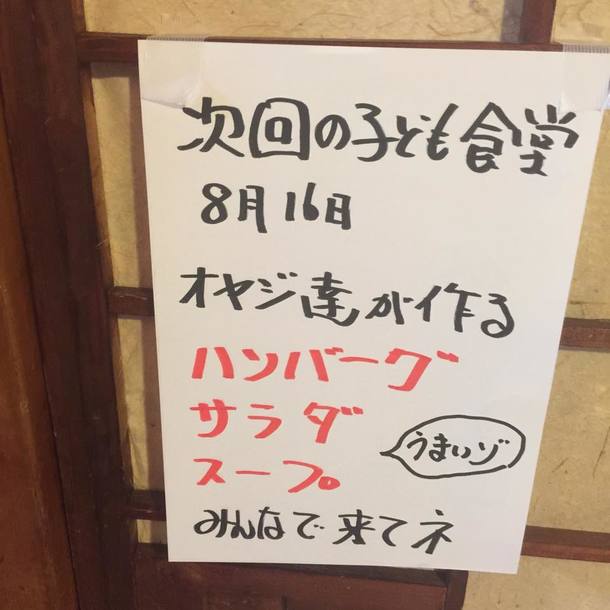 次回の子ども食堂
8月16日
オヤジ達が作る
ハンバーグ
サラダ
うまいゾ
スープ
みんなで来てネ